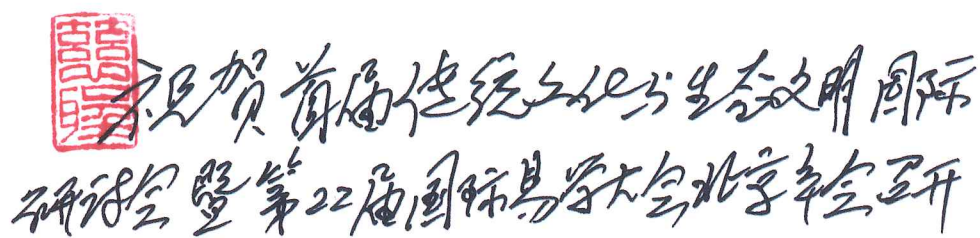 祝贺首届传统文化与生态文明国际
研讨会暨第22届国际易学大会北京年会召开